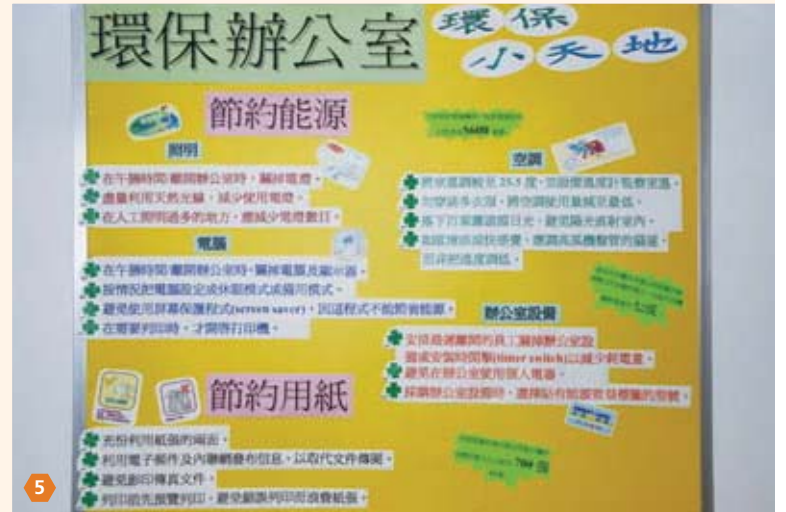 環保辦公室
環保
小天地
節約能源
照明
在午膳時間/離開辦公室時，關掉電燈。
盡量利用天然光線，減少使用電燈。
在人工照明過多的地方，應減少電燈數目。
電腦
在午膳時間/離開辦公室時，關掉電腦及顯示器。
按情況把電腦設定成休眠模式或備用模式。
避免使用屏幕保護程式(screen saver)，因這程式不能節省能源。
在需要列印時，才開啓打印機。
空調
將室溫調較至25.5度，並設置溫度計監察室溫。
勿穿過多衣服，將空調使用量減至最低。
落下百葉簾遮擋日光，避免陽光直射室內。
而非把溫度調低。
辦公室設備
安排最遲離開的員工關掉辦公室設
備或安裝時間掣(timer switch)以減少耗電量。
避免在辦公室使用個人電器。
採購辦公室設備時，選擇貼有能源效益標籤的型號。
節約用紙
充份利用紙張的兩面。
利用電子郵件及內聯網發布信息，以取代文件傳閱。
避免影印傳真文件。
列印前先預覽列印，避免錯誤列印而浪費紙張。
5